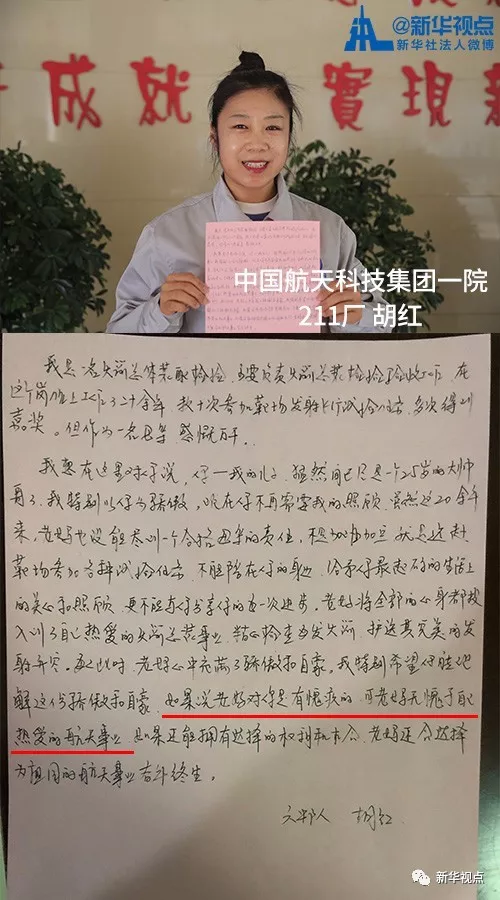 @新华视点
新华社法人微博
成就
實現
中国航天科技集团一院
211厂 胡红
我是一名火箭总体装配检验,主要负责火箭总装检验验收工作,在
这个岗位上工作了二十余年,数十次参加靶场发射飞行试验任务,多次得到
嘉奖。但作为一名母亲感慨万千。
我想在这里对儿子说,仔—我的儿子,猛然间已是一个25岁的大帅
哥了,我特别以你为骄傲,现在你不再需要我的照顾,虽然这20余年
来,老妈也没能尽到一个合格母亲的责任,不是加班加点就是远赴
靶场参加各种试验任务,不能陪在你的身边,给予你最起码的生活上
的关心和照顾,更不能与你分享你的每一次进步。老妈将全部的心身都投
入到了自己热爱的火箭总装事业,精心检查每发火箭,护送其完美的发
射升空。每此时老妈心中充满了骄傲和自豪。我特别希望你能理
解这份骄傲和自豪,如果说老妈对你是有愧疚的,可老妈无愧于自己
热爱的航天事业,如果还能拥有选择的权利和机会,老妈还会选择
为祖国的航天事业奋斗终生。
六职人 胡红
新华视点